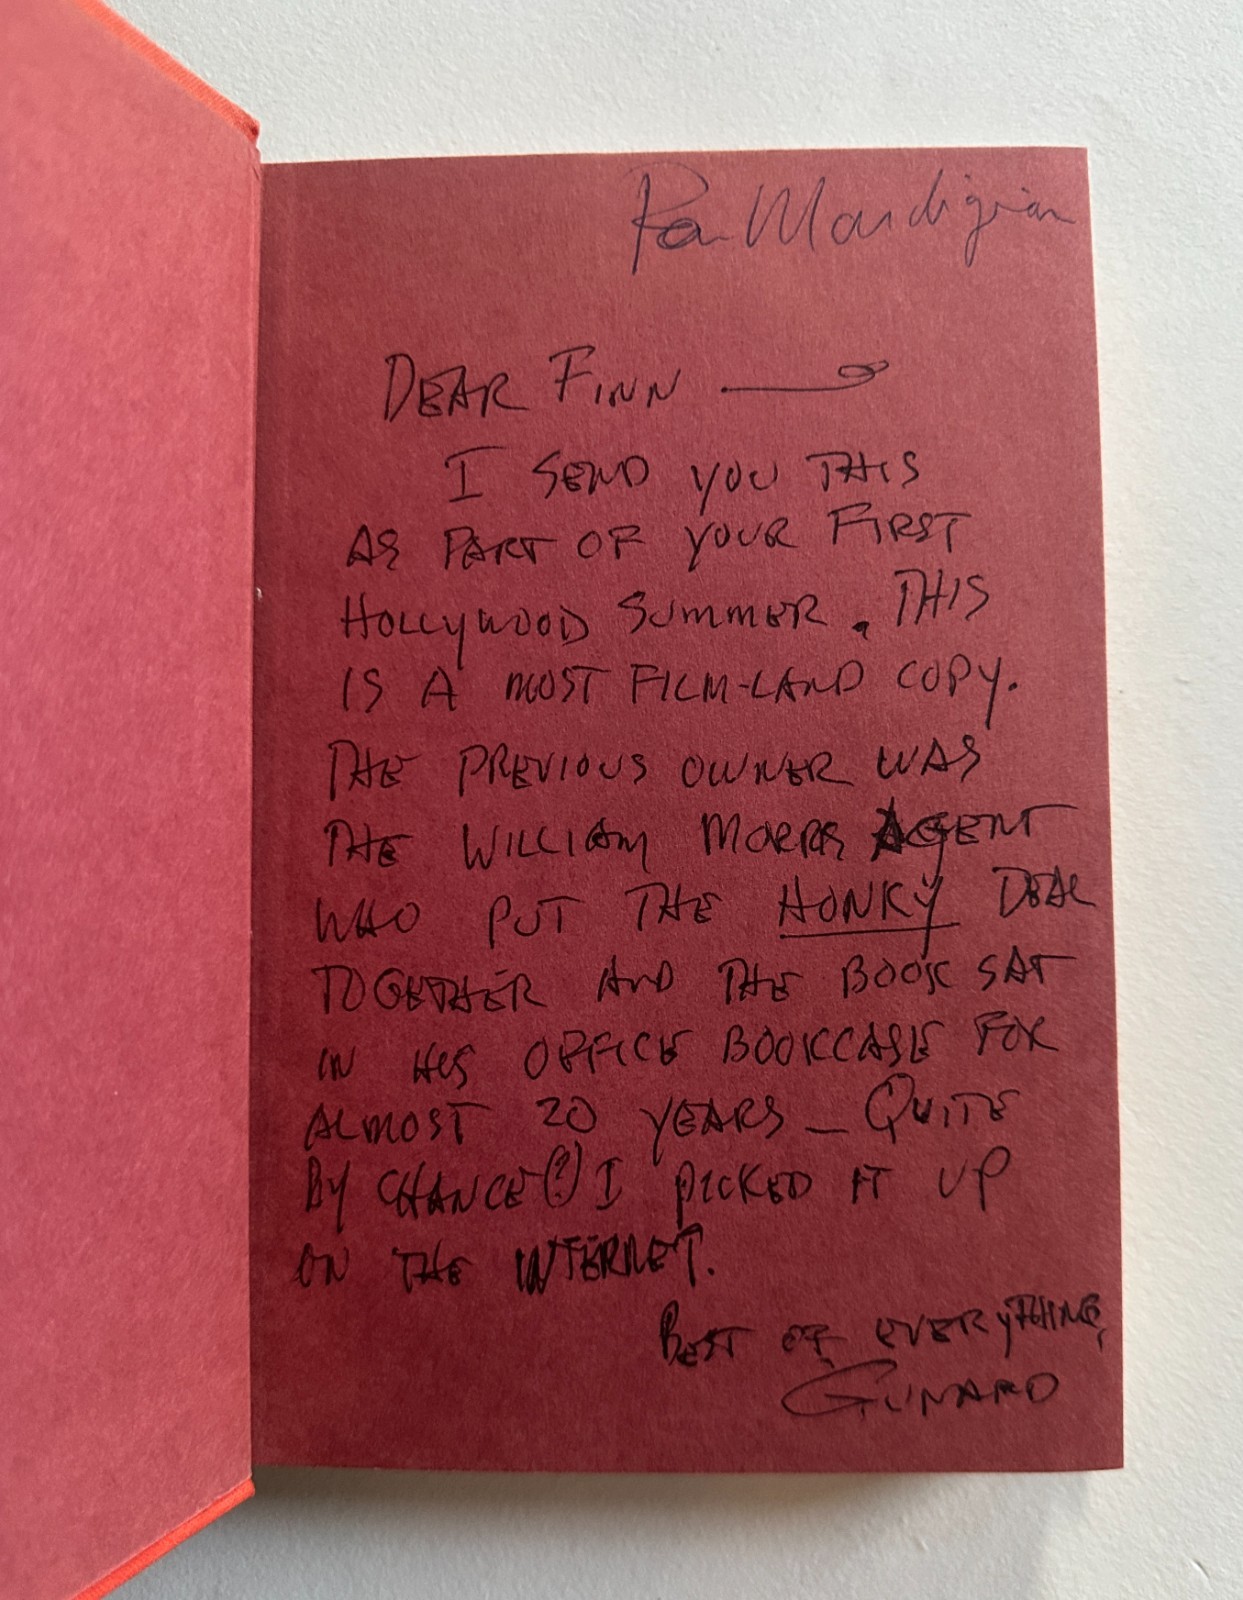 Ron Mardigian
DEAR FINN —
I SEND YOU THIS
AS PART OF YOUR FIRST
HOLLYWOOD SUMMER. THIS
IS A MOST FILM-LAND COPY.
THE PREVIOUS OWNER WAS
THE WILLIAM MORRIS AGENT
WHO PUT THE HONKY DEAL
TOGETHER AND THE BOOK SAT
IN HIS OFFICE BOOKCASE FOR
ALMOST 20 YEARS — QUITE
BY CHANCE(?) I PICKED IT UP
ON THE INTERNET.
BEST OF EVERYTHING,
GUNARD